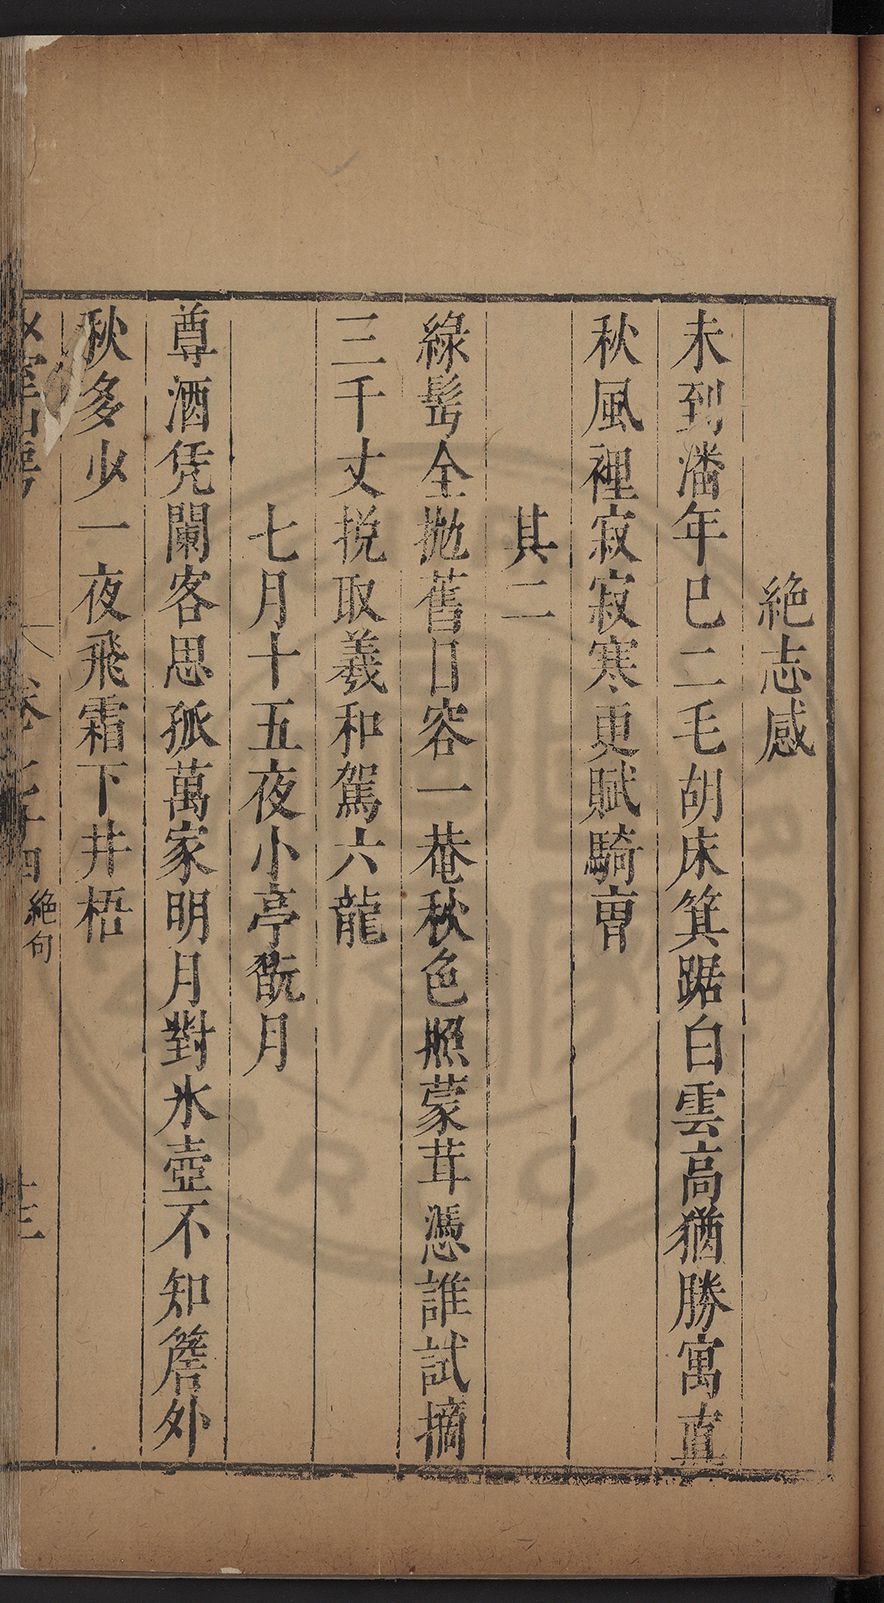 絶志感
未到潘年已二毛胡床箕踞白雲高猶勝寓直
秋風裡寂寂寒更賦騎曹
其二
綠髩全拋舊日容一菴秋色照蒙茸憑誰試摘
三千丈挽取羲和駕六龍
七月十五夜小亭翫月
尊酒凭闌客思孤萬家明月對氷壺不知簷外
秋多少一夜飛霜下井梧
房 卷之十四 絶句